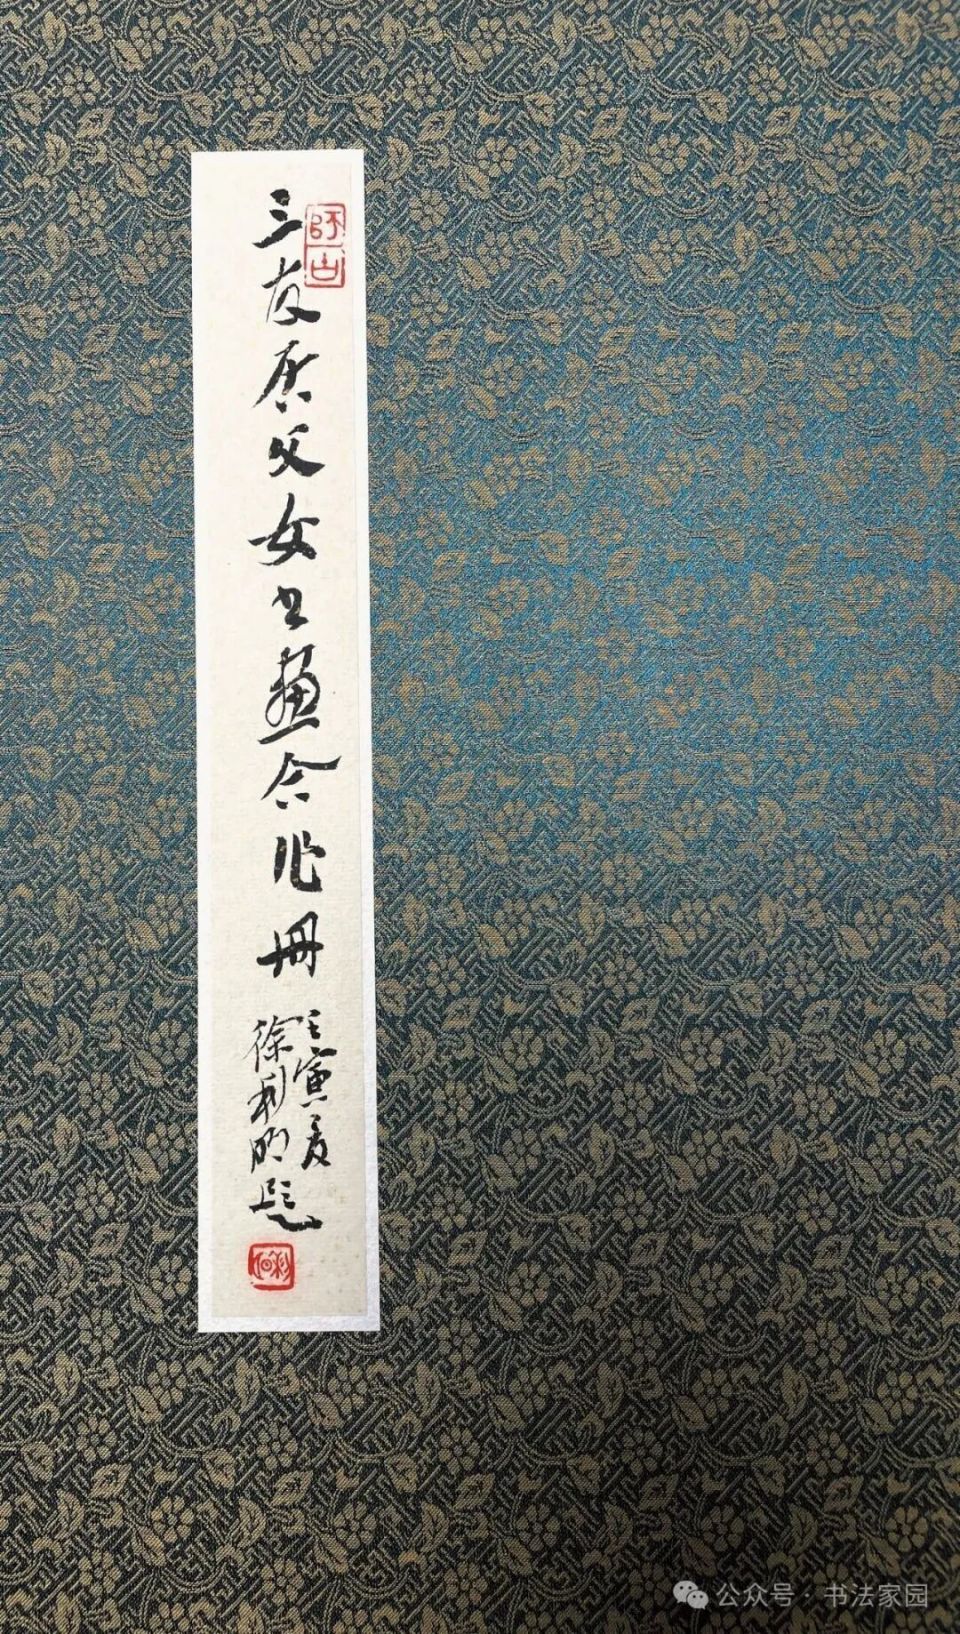 三友居父女书画合作册
壬寅夏
徐利明题
公众号 · 书法家园